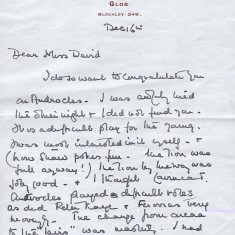 GLOS.
BLOCKLEY 248.
Dec. 16th
Dear Miss David
I do so want to congratulate you
on Androcles. I was awfully
the other night & I did not find you.
It is a difficult play for the young.
I was most interested in it myself - &
how Shaw pokes fun. The lion was
full The lion by the way was
jolly good - & I thought
Androcles played a difficult role
as did Peter Kaye & Ferrovius very
. The change from arena
to the " " was . I had